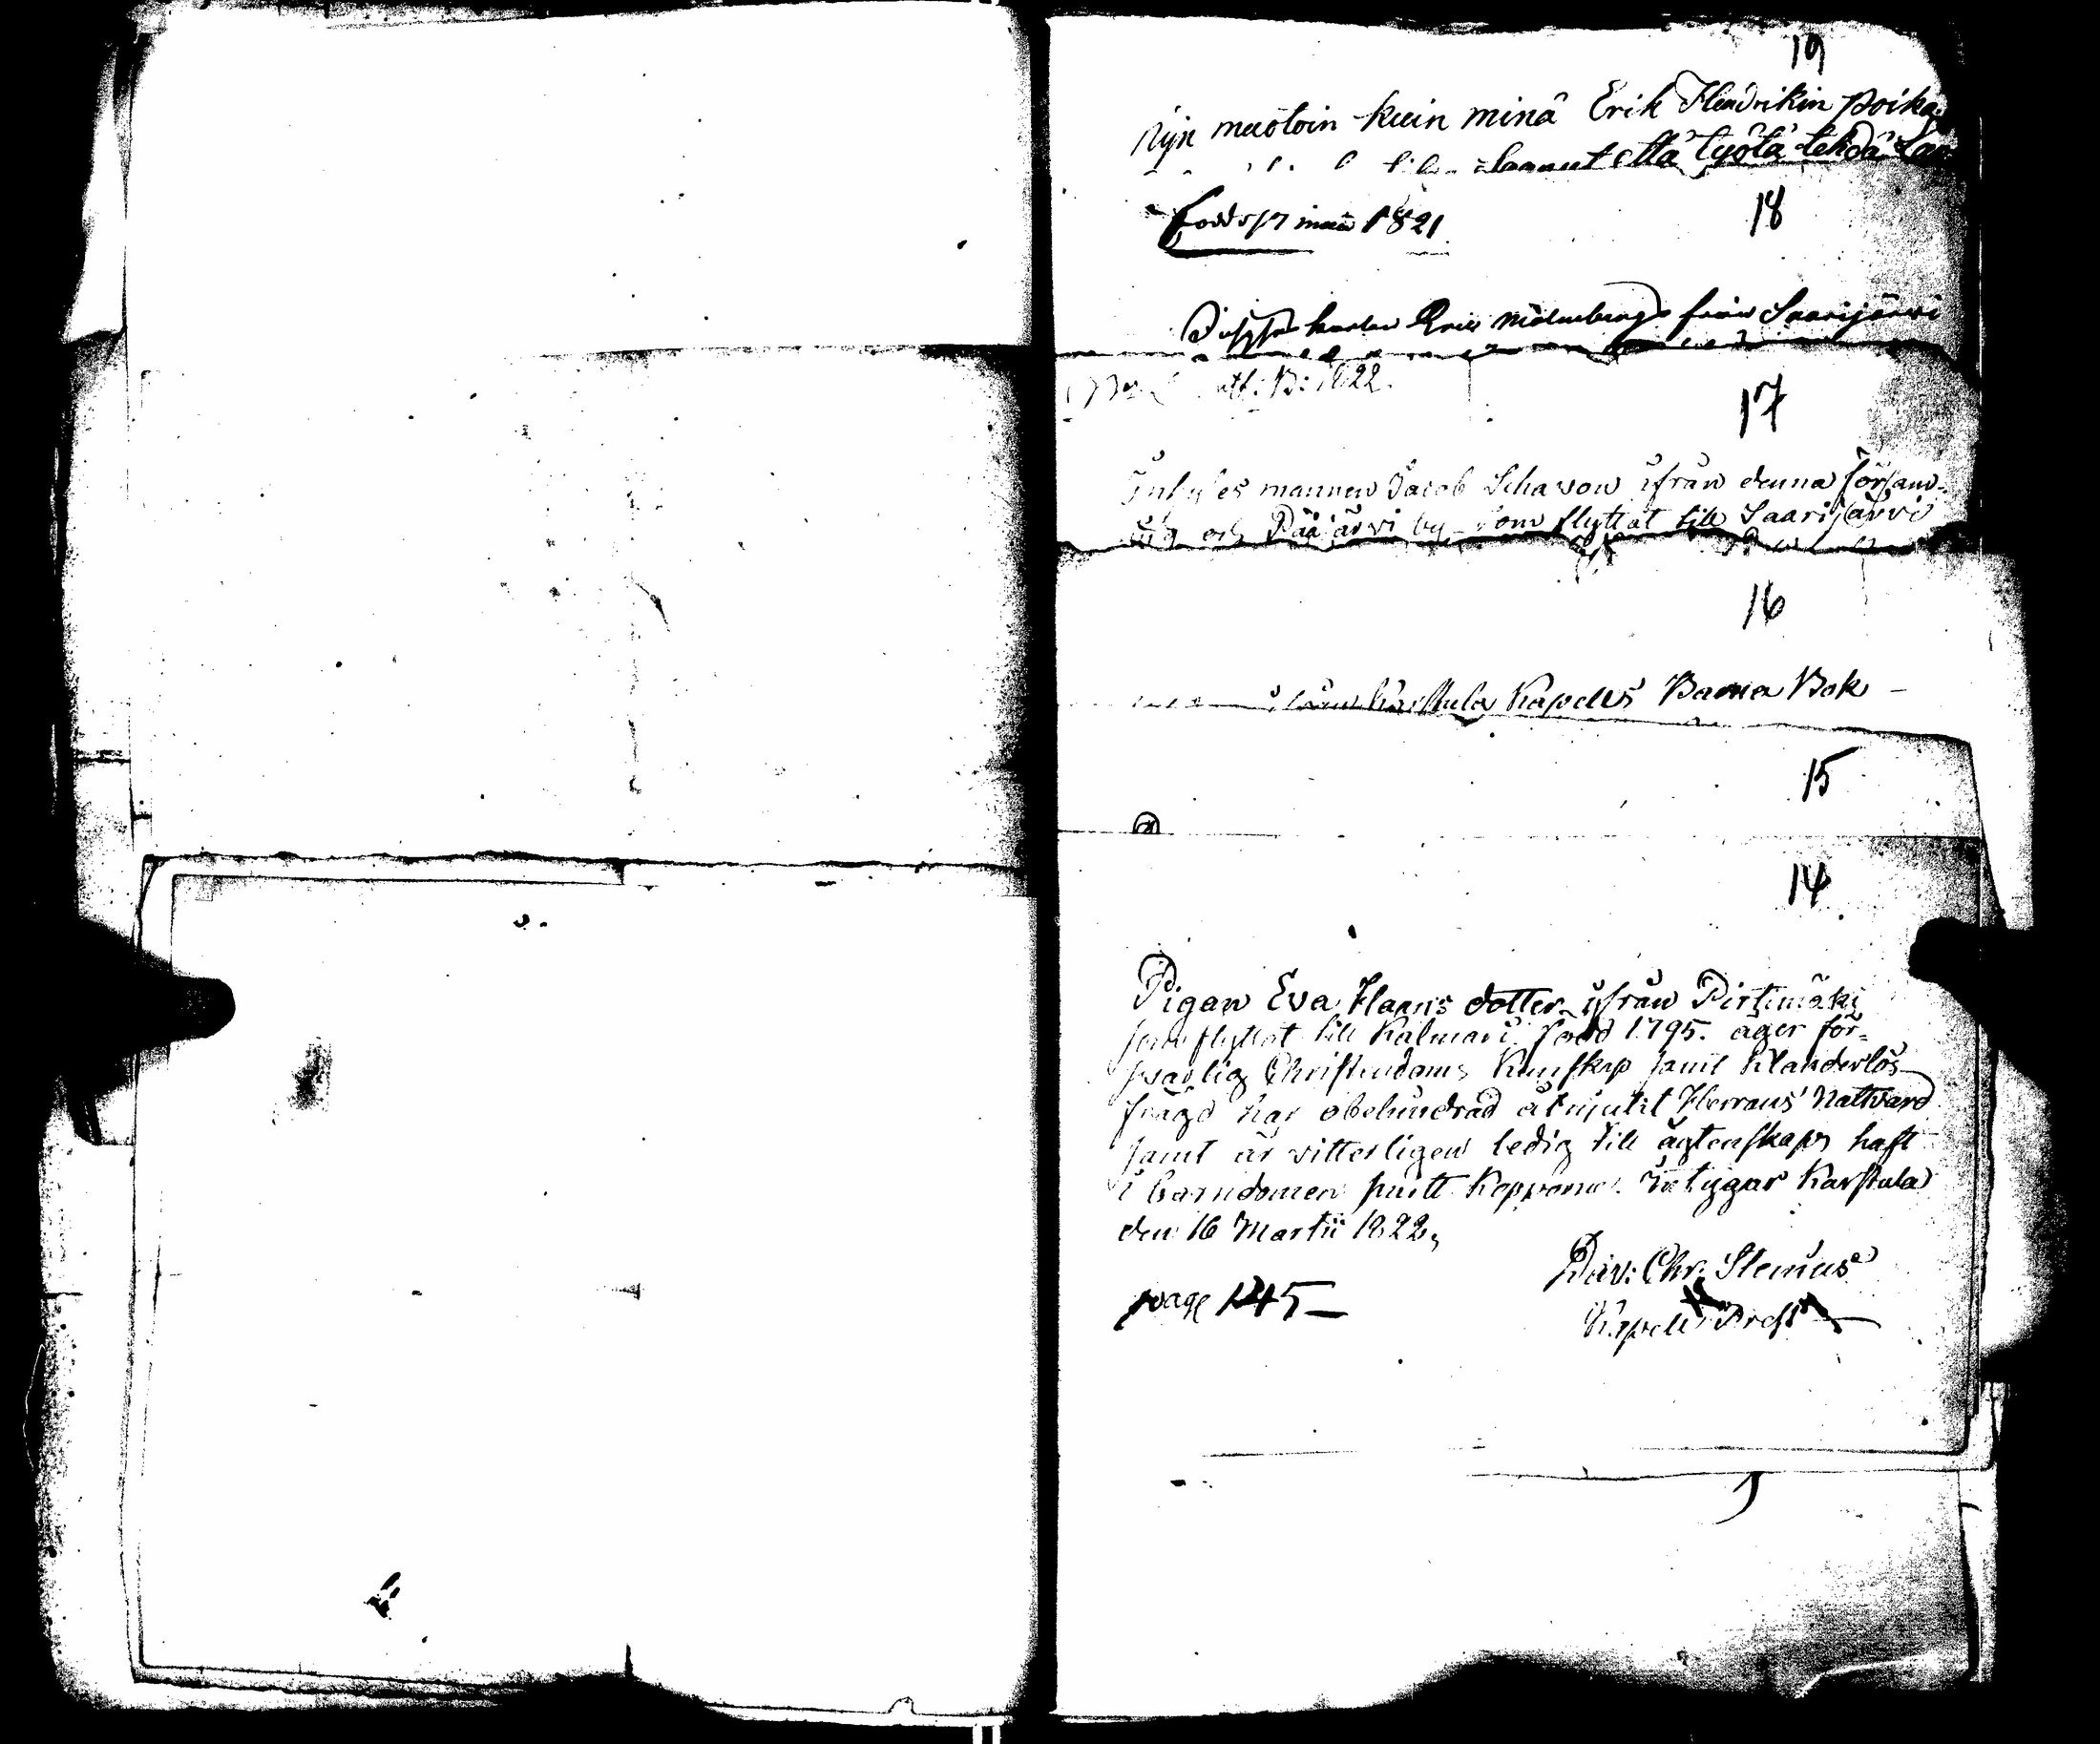 19
Nijn muotoin kuin minä Erik Hendrikin poika
luanut että työtä tehdä
18
1821
från Saarijärvi
1822.
17
Inhyses mannen Jacob Schavon ifrån denna försam-
ling och Pääjärvi by som flyttat till Saarijärvi
16
Karstula Kapells Barna Bok
15
14
Pigan Eva Hans dotter ifrån Pirtimäki
som flyttat till Kalmari född 1795. äger för-
svarlig Christendoms Kunskap samt Klanderlös
frägd har obehindrad åtnjutit Herrans Nattvard
samt är vitterligen ledig till ägtenskap, haft
i barndomen Kopporna. intygar Karstula
den 16 Martii 1822,
Dav: Chr: Stenius
pag 145
Kapell Prest